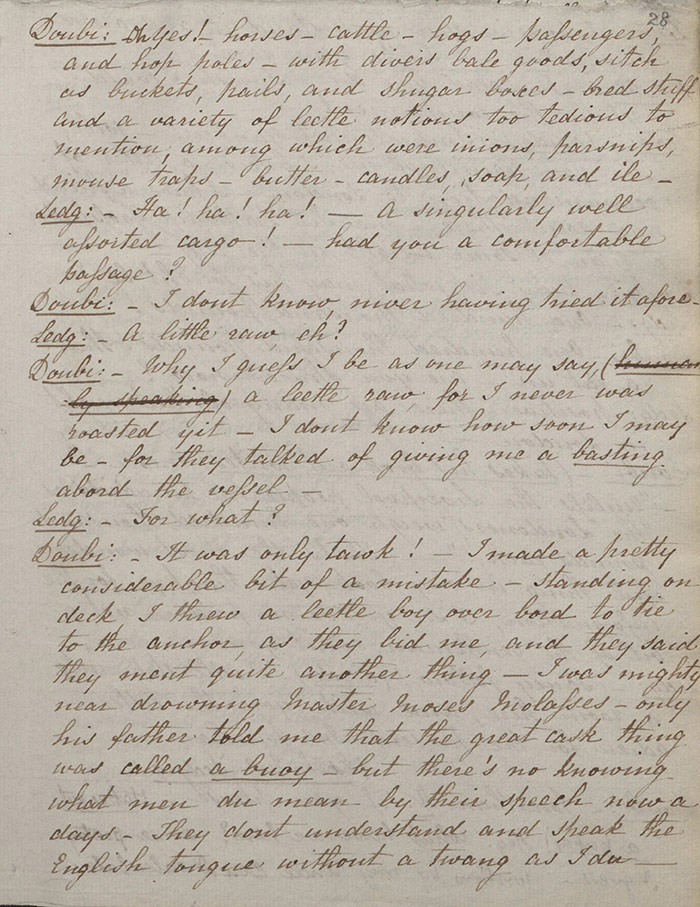 28
Doubi: Oh Yes! – horses – cattle – hogs – passengers,
and hop poles – with divers bale goods, sitch
as buckets, pails, and shugar boxes – bred stuff
and a variety of leetle notions too tedious to
mention, among which were inions, parsnips,
mouse traps – butter – candles, soap, and ile –
Ledg: – Ha! ha! ha! – A singularly well
assorted cargo! – had you a comfortable
passage?
Doubi: – I dont know, niver having tried it afore –
Ledg: – A little raw, eh?
Doubi: – Why I guess I be as one may say, (human
ly speaking) a leetle raw, for I never was
roasted yit – I dont know how soon I may
be – for they talked of giving me a basting
abord the vessel –
Ledg: – For what?
Doubi: – It was only tawk! – I made a pretty
considerable bit of a mistake – standing on
deck, I threw a leetle boy over bord to tie
to the anchor, as they bid me, and they said
they ment quite another thing – I was mighty
near drowning Master Moses Molasses – only
his father told me that the great cask thing
was called a buoy – but there's no knowing
what men du mean by their speech now a
days – They dont understand and speak the
English tongue without a twang as I du –